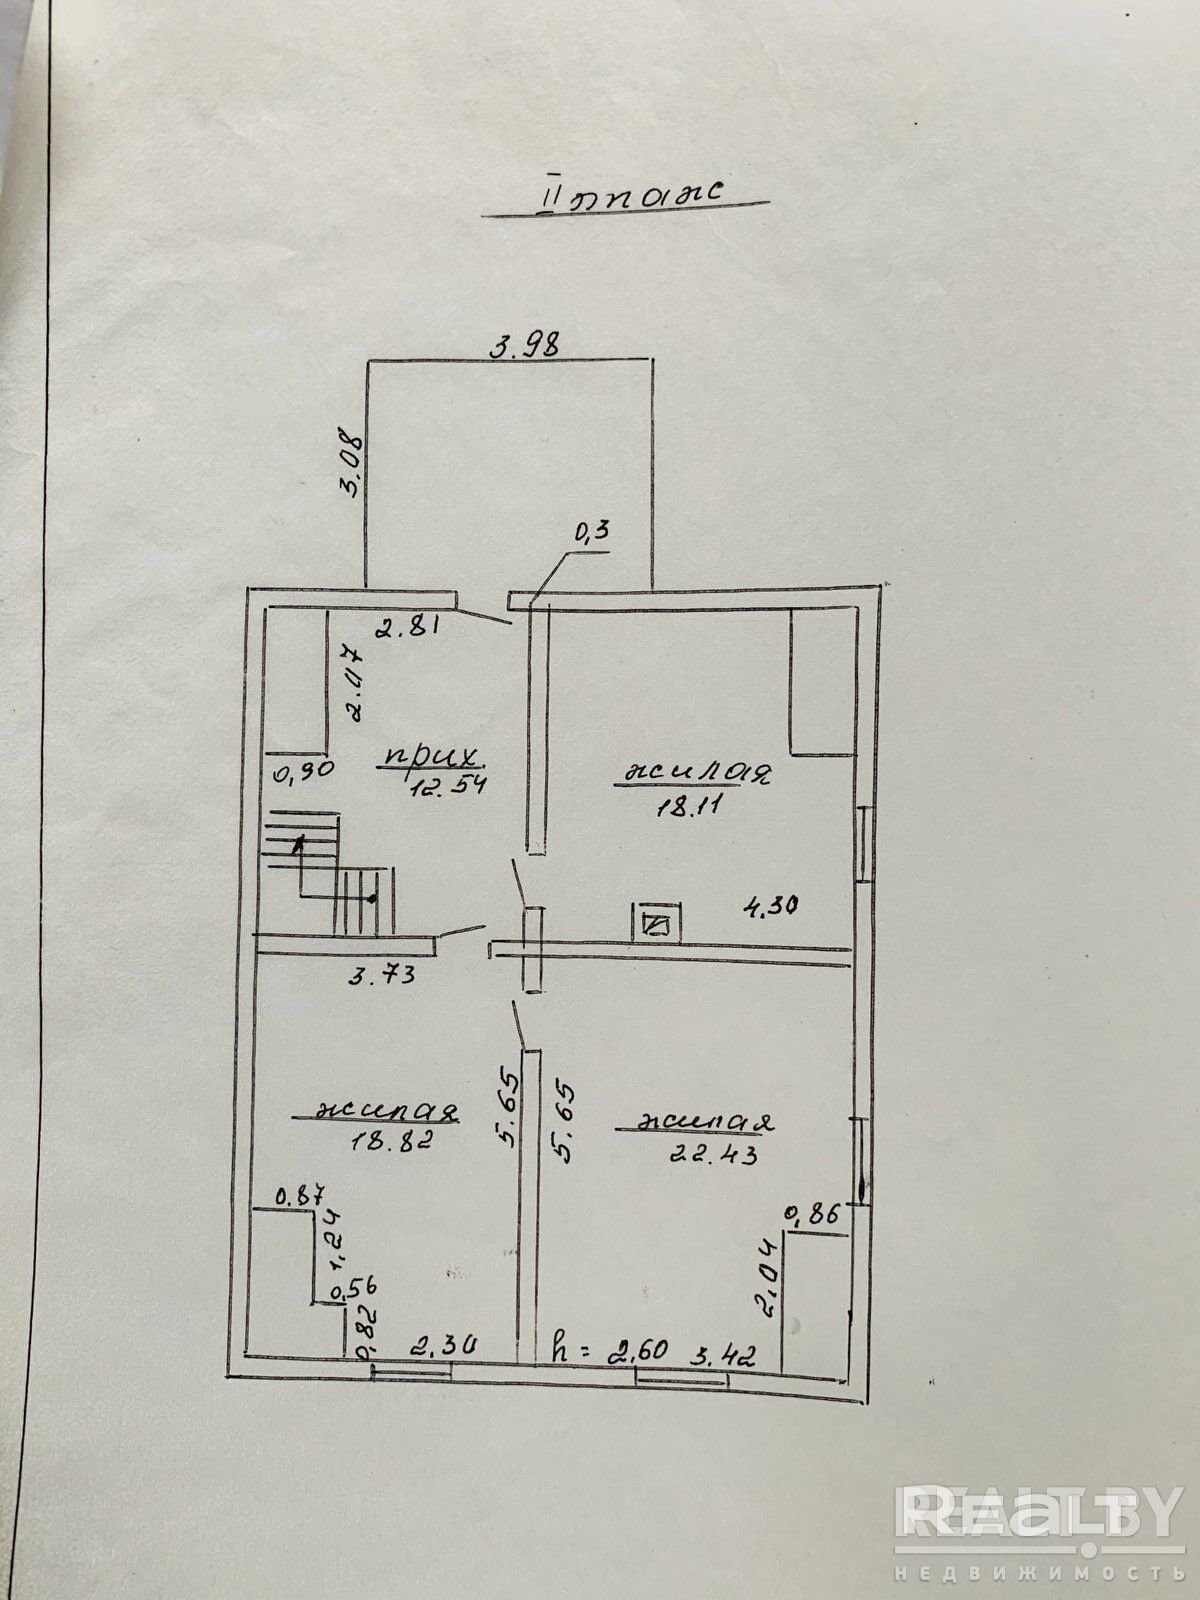 II этаж
3.98
3.08
0,3
2.81
2.07
0,90
прих.
12.54
жилая
18.11
4.30
3.73
жилая
18.82
5.65
5.65
жилая
22.43
0.87
1,24
0,56
0,82
2,30
0,86
2,04
h = 2,60
3.42
REALT.BY
НЕДВИЖИМОСТЬ